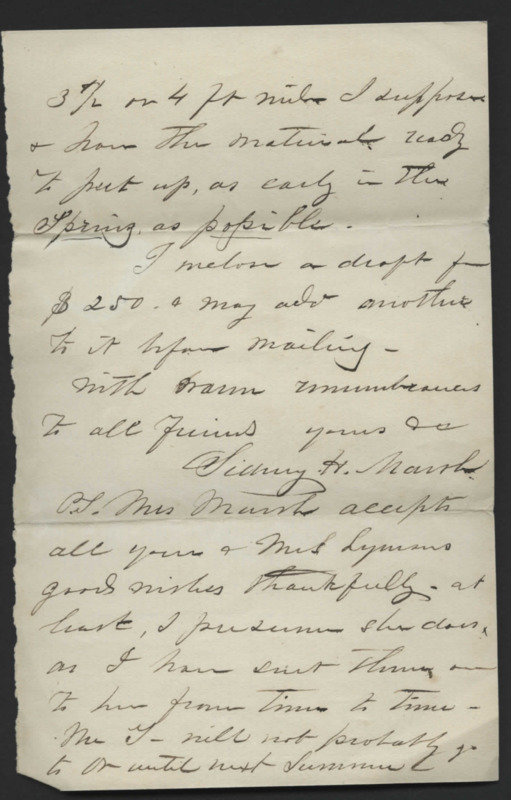 3 1/2 or 4 ft I suppose
& have the material ready
to put up, as early in the
Spring, as possible.
I inclose a draft for
$250. & may add another
to it before mailing -
with warm remembrances
to all friends yours &c
Sidney H. Marsh.
P.S. Mrs Marsh accepts
all your & Mrs Lymans
good wishes thankfully - at
least, I presume she does,
as I have sent them on
to her from time to time -
Mr J - will not probably go
to Or until next Summer